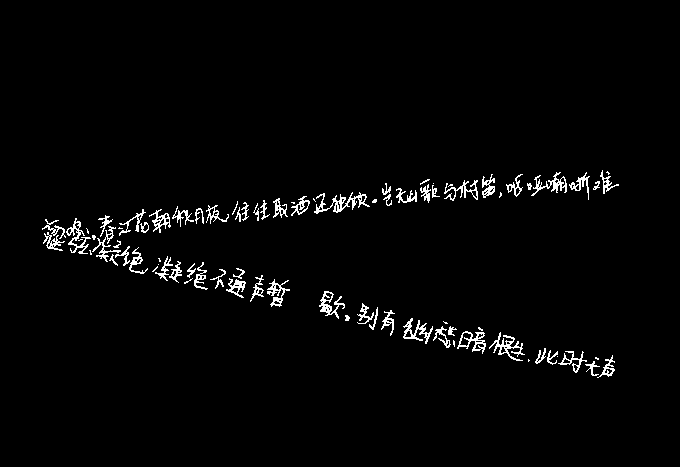 鸣。春江花朝秋月夜,往往取酒还独饮。岂无山歌与村笛,呕哑嘲哳难
弦凝绝,凝绝不通声暂歇。别有幽愁暗恨生,此时无声